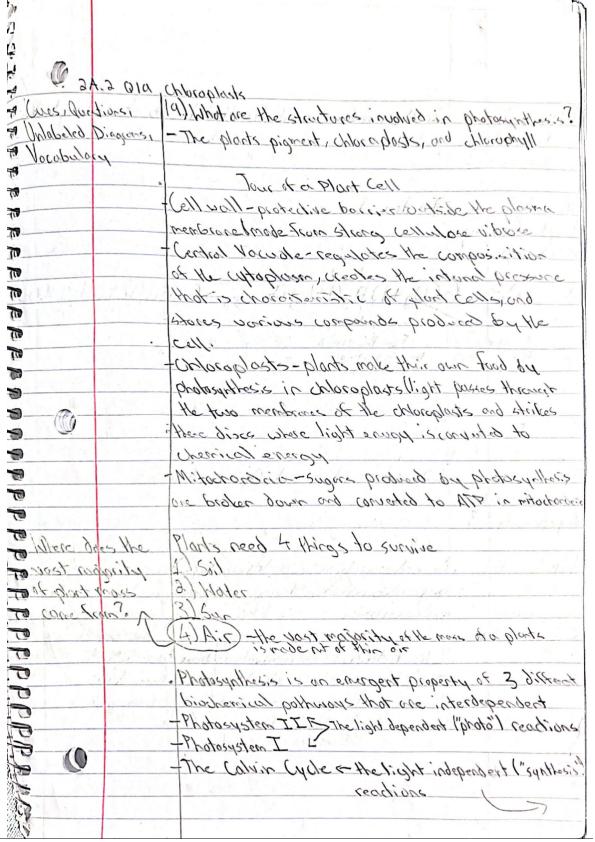 2A.2 Q19 Chloroplasts
Cues, Questions,
Unlabeled Diagrams,
Vocabulary
19) What are the structures involved in photosynthesis?
- The plants pigment, chloroplasts, and chlorophyll
Tour of a Plant Cell
- Cell wall - protective barrier outside the plasma
membrane (made from strong cellulose
- Central Vacuole - regulates the composition
of the cytoplasm, creates the internal pressure
that is characteristic of plant cells, and
stores various compounds produced by the
cell.
- Chloroplasts - plants make their own food by
photosynthesis in chloroplasts (light passes through
the two membranes of the chloroplasts and strikes
these discs where light energy is converted to
chemical energy
- Mitochondria - sugars produced by photosynthesis
are broken down and converted to ATP in mitochondria
Where does the
vast majority
of plant mass
come from?
Plants need 4 things to survive
1) Soil
2) Water
3) Sun
4) Air - the vast majority of the mass of a plants
is made out of thin air
• Photosynthesis is an emergent property of 3 different
biochemical pathways that are interdependent
- Photosystem II The light dependent ("photo") reactions
- Photosystem I
- The Calvin Cycle ← the light independent ("synthesis")
reactions